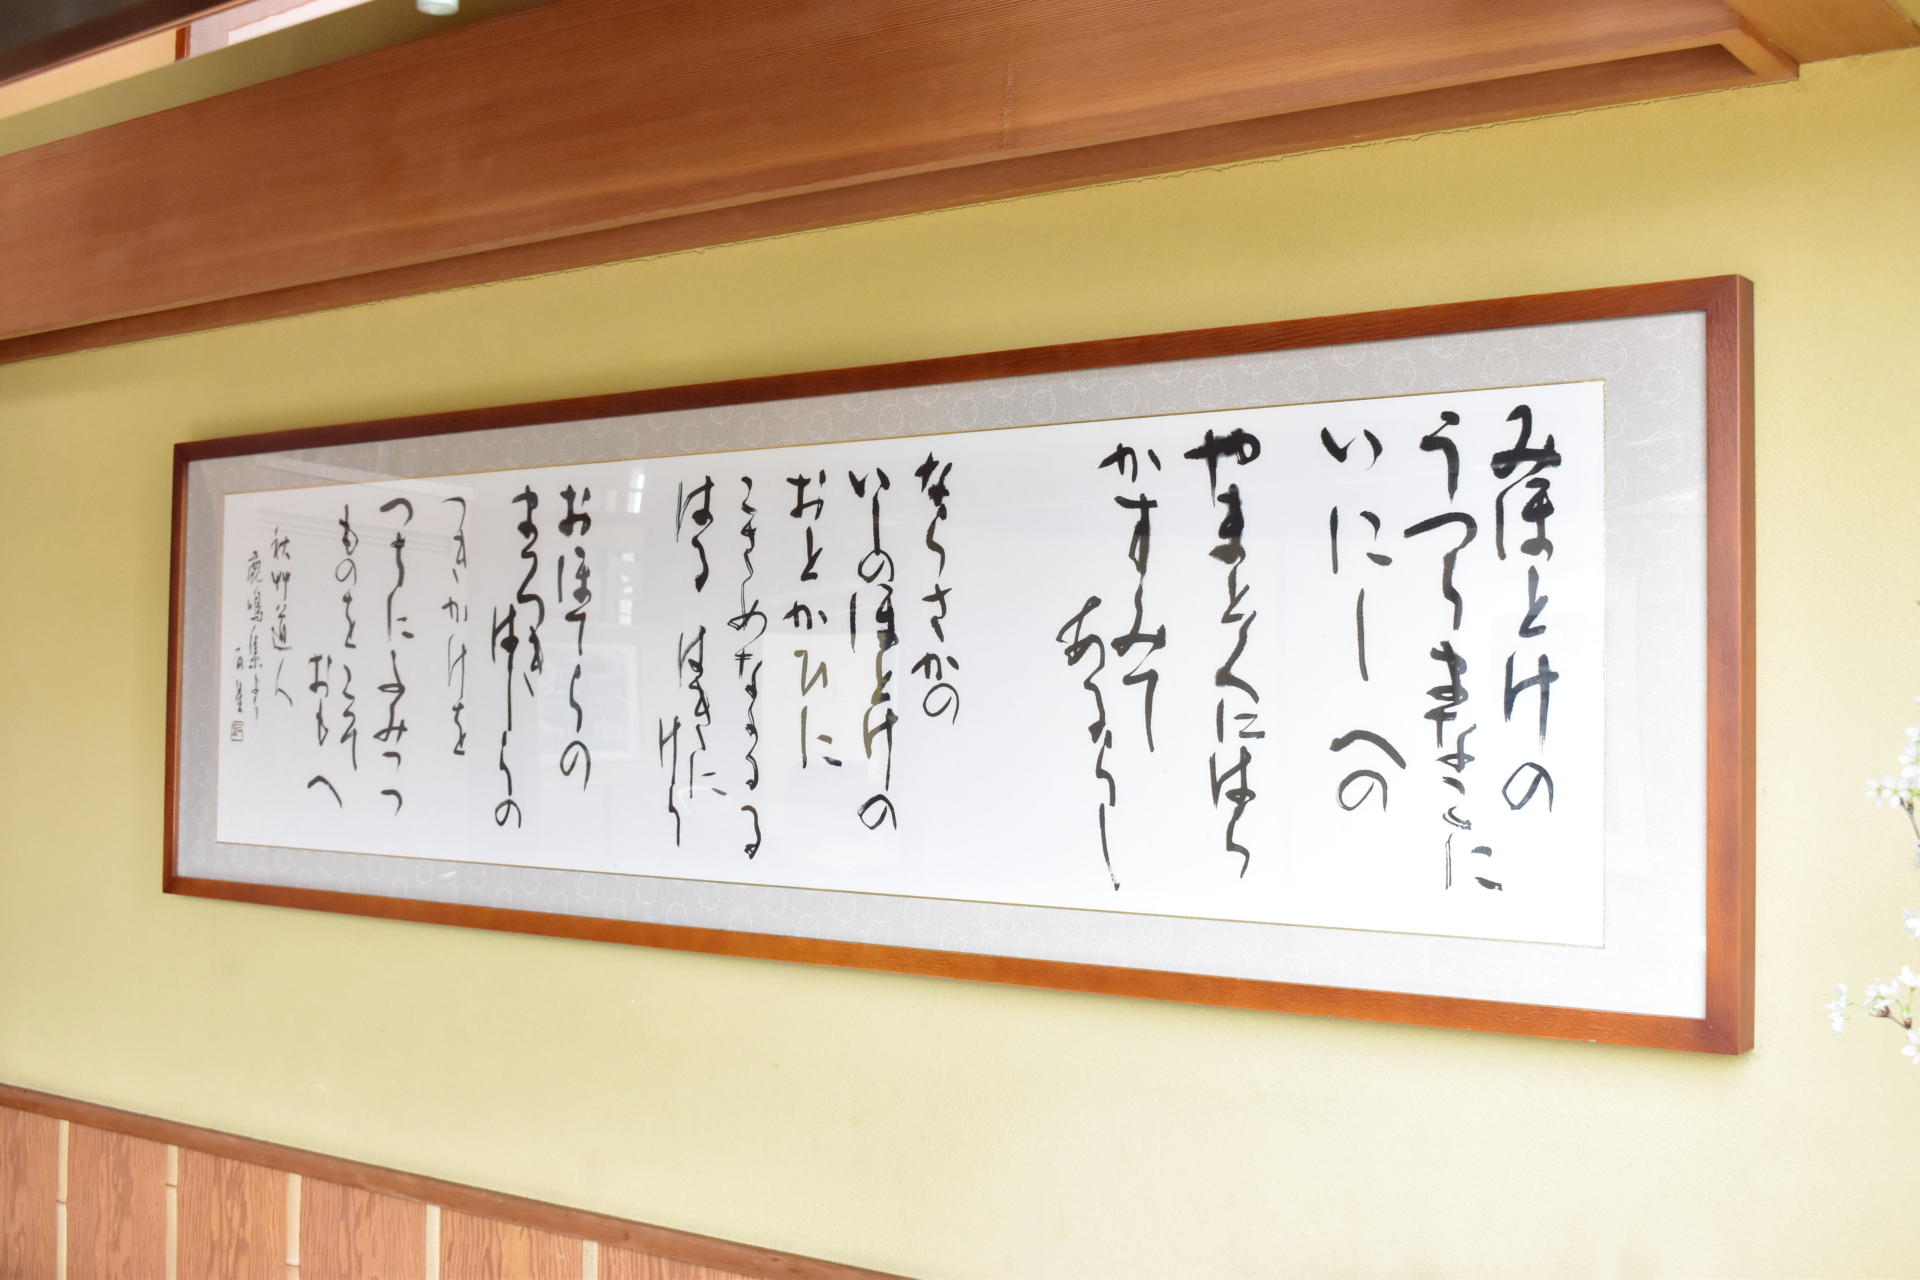 みほとけの
うつらまなこに
いにしへの
やまとくにはら
かすみて
あるらし
ならさかの
いしのほとけの
おとがひに
こさめながるる
はるはきにけり
おほてらの
まろきはしらの
つきかげを
つちにふみつつ
ものをこそ
おもへ
秋艸道人
鹿鳴集より